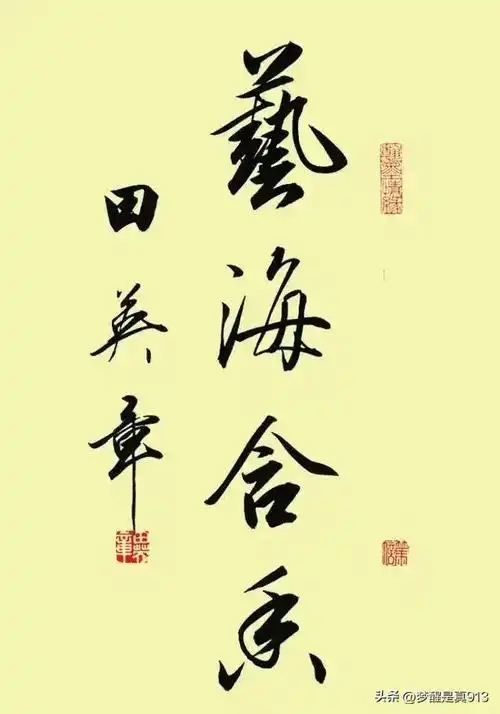 藝海合香
田英章
头条 @梦醒是真913